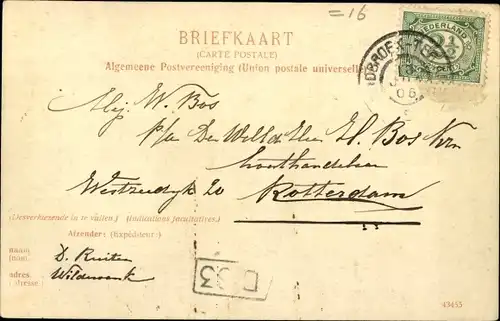 =16
BRIEFKAART
(CARTE POSTALE)
Algemeene Postvereeniging (Union postale universelle)
NEDERLAND
2½
06
W. Bos
p/a Den H. Bos
houthandelaar
Westzeedijk 20 Rotterdam
(Desverkiezende in te vullen.) (Indications facultatives.)
Afzender: (Expéditeur:)
naam
(nom). D. Ruiten
adres.
(adresse) Wildervank
43455